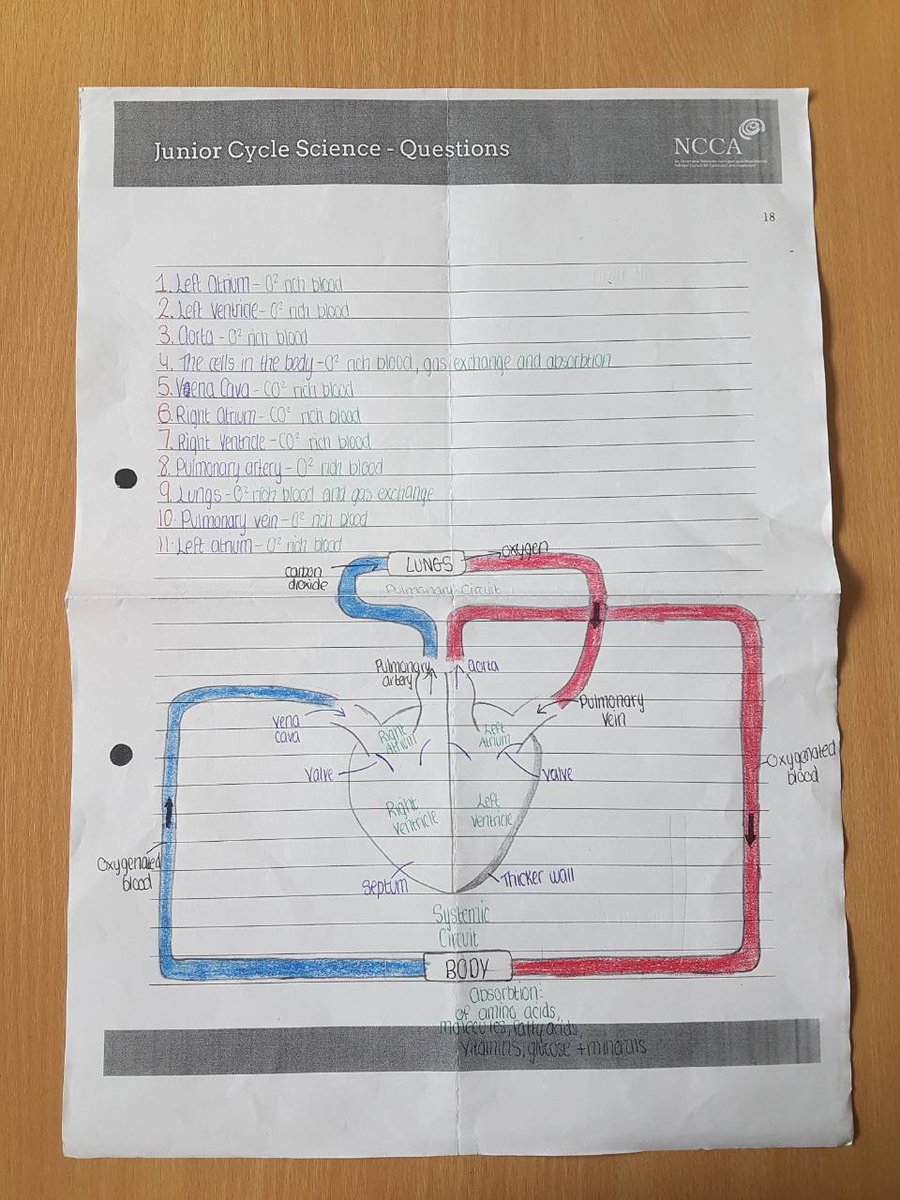 Junior Cycle Science - Questions
NCCA
18
1. Left Atrium - O² rich blood
2. Left Ventricle - O² rich blood
3. Aorta - O² rich blood
4. The cells in the body - O² rich blood, gas exchange and absorption
5. Vena Cava - CO² rich blood
6. Right Atrium - CO² rich blood
7. Right Ventricle - CO² rich blood
8. Pulmonary artery - O² rich blood
9. Lungs - O² rich blood and gas exchange
10. Pulmonary vein - O² rich blood
11. Left atrium - O² rich blood
carbon
dioxide
LUNGS
oxygen
Pulmonary Circuit
Pulmonary
artery
aorta
vena
cava
Right
Atrium
Left
Atrium
Pulmonary
vein
valve
valve
Oxygenated
blood
Right
Ventricle
Left
Ventricle
Oxygenated
blood
Septum
Thicker wall
Systemic
Circuit
BODY
absorbtion:
of amino acids,
molecules, fatty acids,
vitamins, glucose +